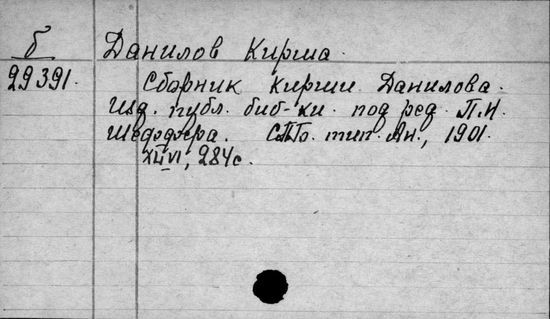 б Данилов Кирша.
29391. Сборник Кирши Данилова.
Изд. публ. биб-ки под ред. П.Н.
Шеффера. СПб. тип. Ан., 1901.
284с.